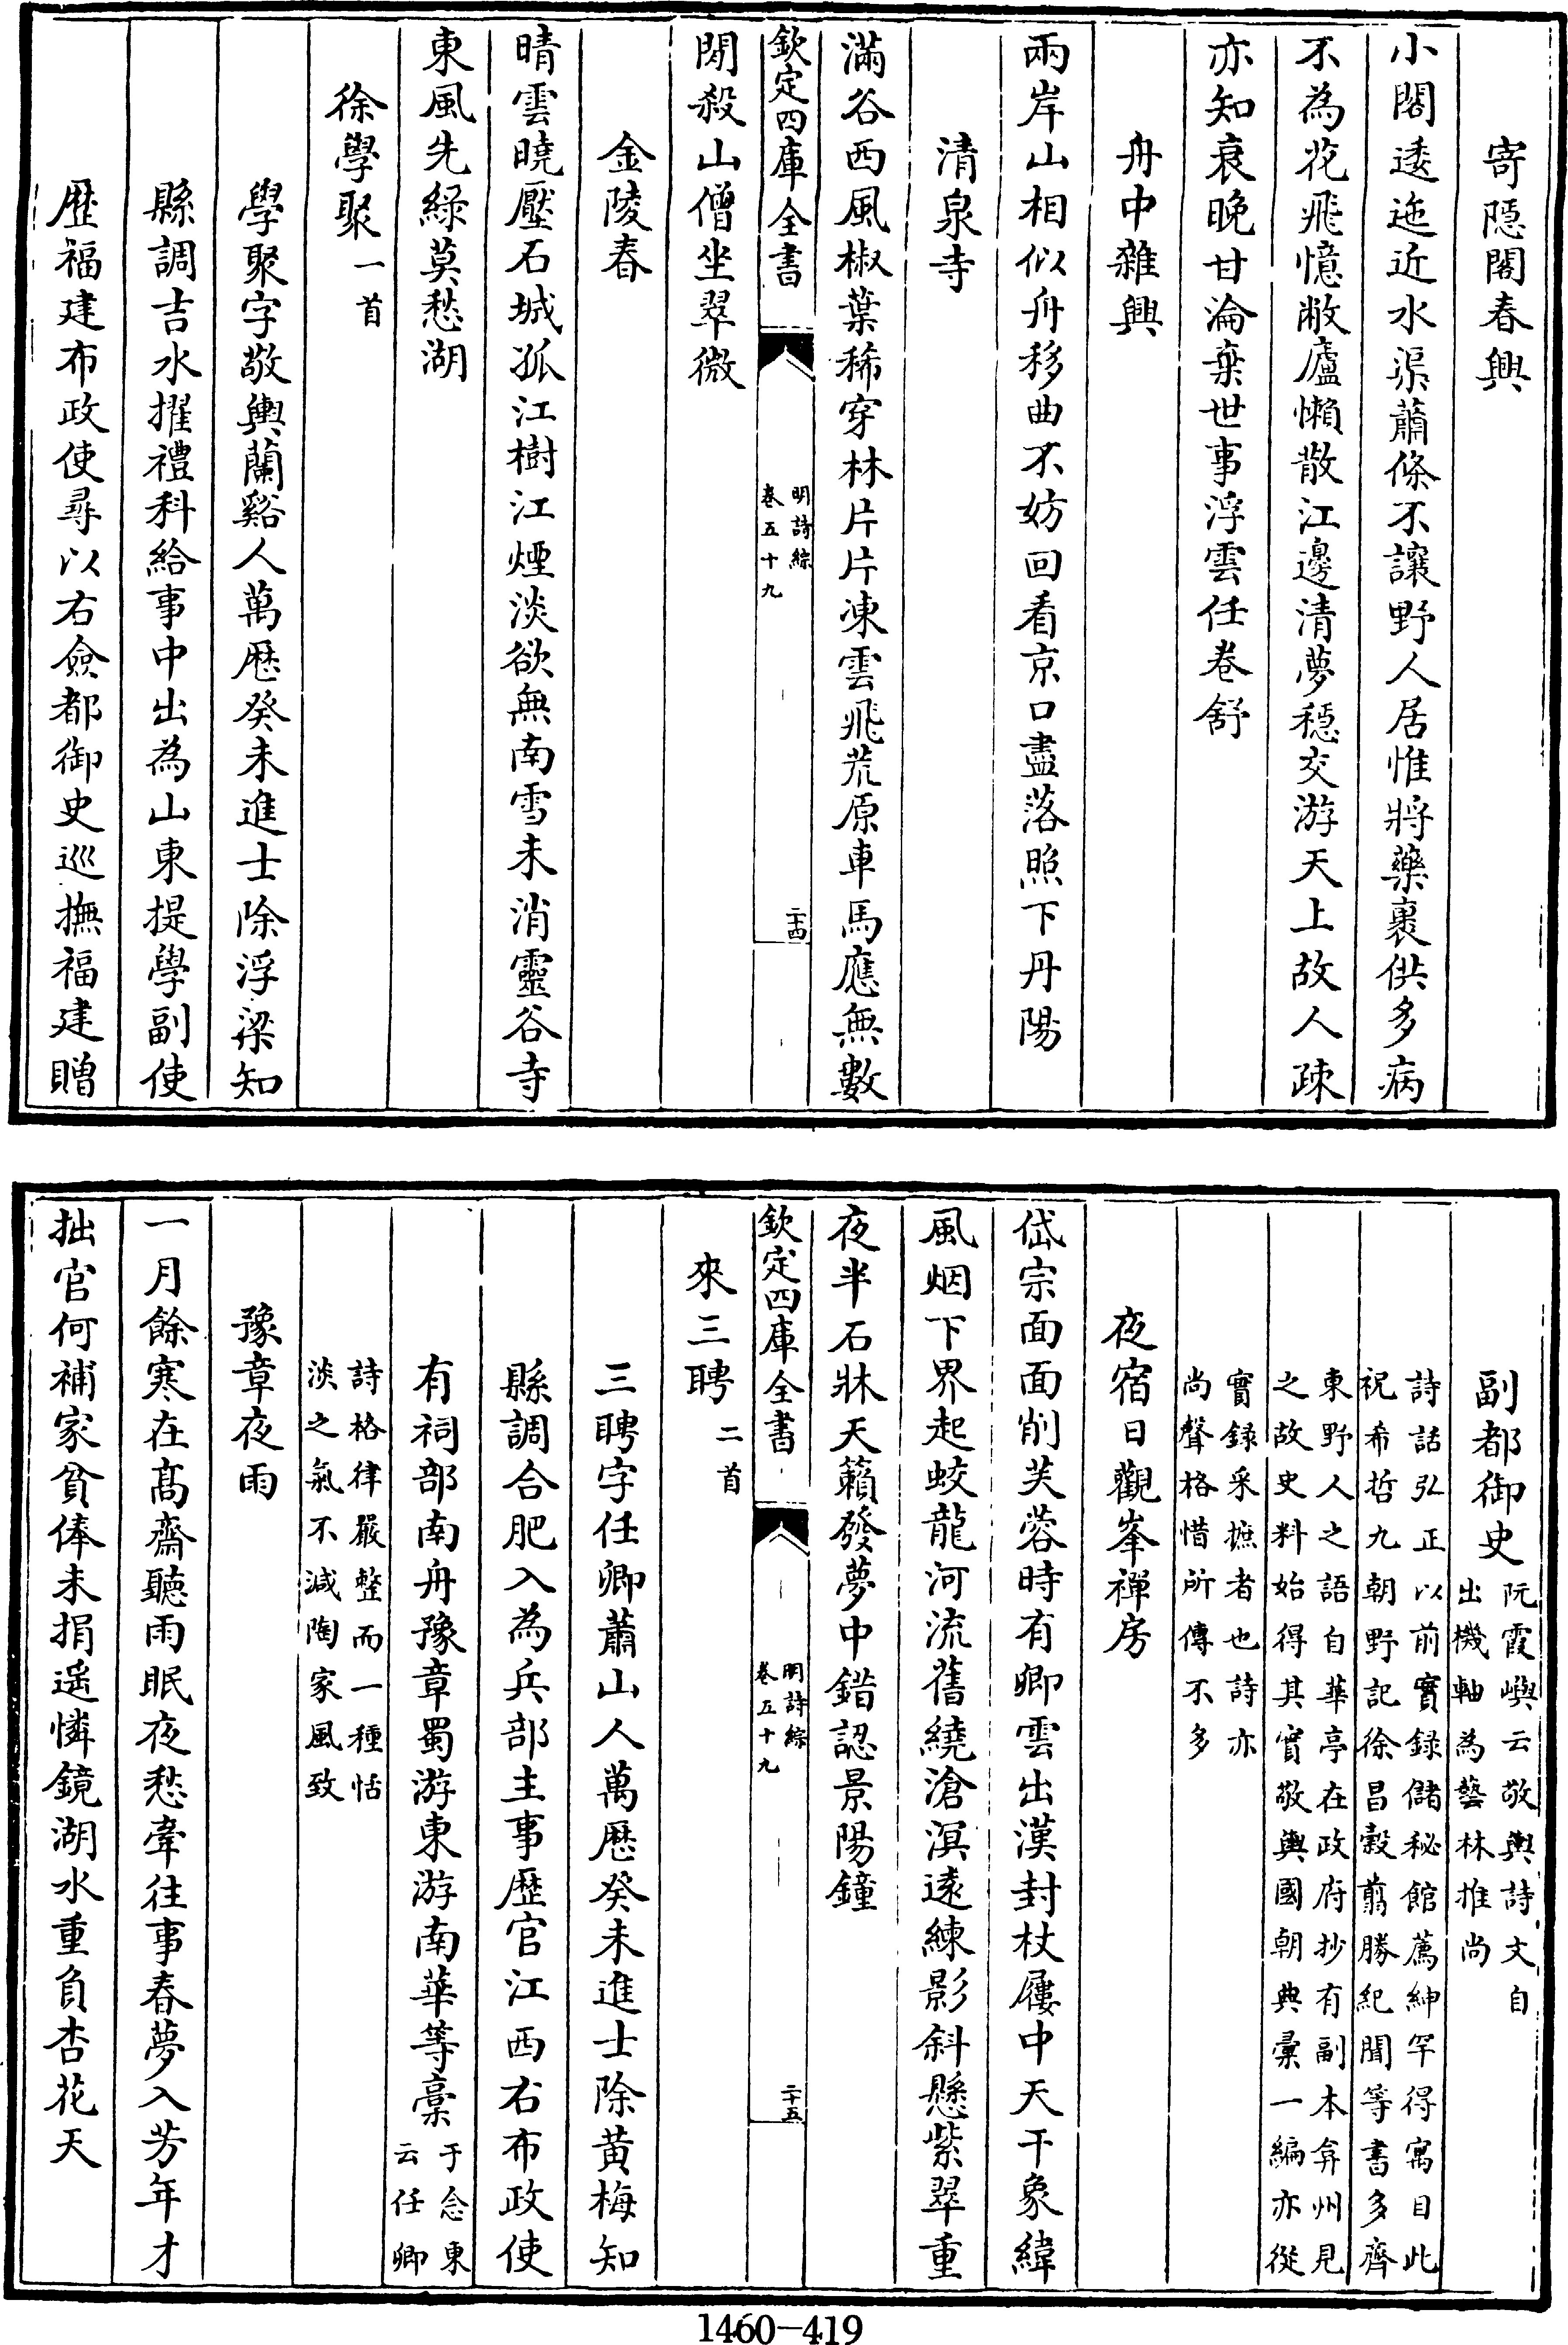 寄隱閣春興
小閣逶迤近水渠蕭條不讓野人居惟將藥裹供多病
不為花飛憶敝廬懶散江邊清夢穩交游天上故人疎
亦知衰晚甘淪棄世事浮雲任卷舒
舟中雜興
兩岸山相似舟移曲不妨回看京口盡落照下丹陽
清泉寺
滿谷西風椒葉稀穿林片片凍雲飛荒原車馬應無數
欽定四庫全書
明詩綜
卷五十九
二十四
閒殺山僧坐翠微
金陵春
晴雲曉壓石城孤江樹江煙淡欲無南雪未消靈谷寺
東風先綠莫愁湖
徐學聚一首
學聚字敬輿蘭谿人萬歷癸未進士除浮梁知
縣調吉水擢禮科給事中出為山東提學副使
歷福建布政使尋以右僉都御史巡撫福建贈
副都御史阮霞嶼云敬輿詩文自
出機軸為藝林推尚
詩話弘正以前實錄儲秘館薦紳罕得寓目此
祝希哲九朝野記徐昌穀翦勝紀聞等書多齊
東野人之語自華亭在政府抄有副本弇州見
之故史料始得其實敬輿國朝典彙一編亦從
實錄采摭者也詩亦
尚聲格惜所傳不多
夜宿日觀峯禪房
岱宗面面削芙蓉時有卿雲出漢封杖屨中天干象緯
風烟下界起蛟龍河流舊繞滄溟遠練影斜懸紫翠重
夜半石牀天籟發夢中錯認景陽鐘
欽定四庫全書
明詩綜
卷五十九
二十五
來三聘二首
三聘字任卿蕭山人萬歷癸未進士除黃梅知
縣調合肥入為兵部主事歷官江西右布政使
有祠部南舟豫章蜀游東游南華等稾于念東
云任卿
詩格律嚴整而一種恬
淡之氣不減陶家風致
豫章夜雨
一月餘寒在髙齋聽雨眠夜愁牽往事春夢入芳年才
拙官何補家貧俸未捐遥憐鏡湖水重負杏花天
1460-419